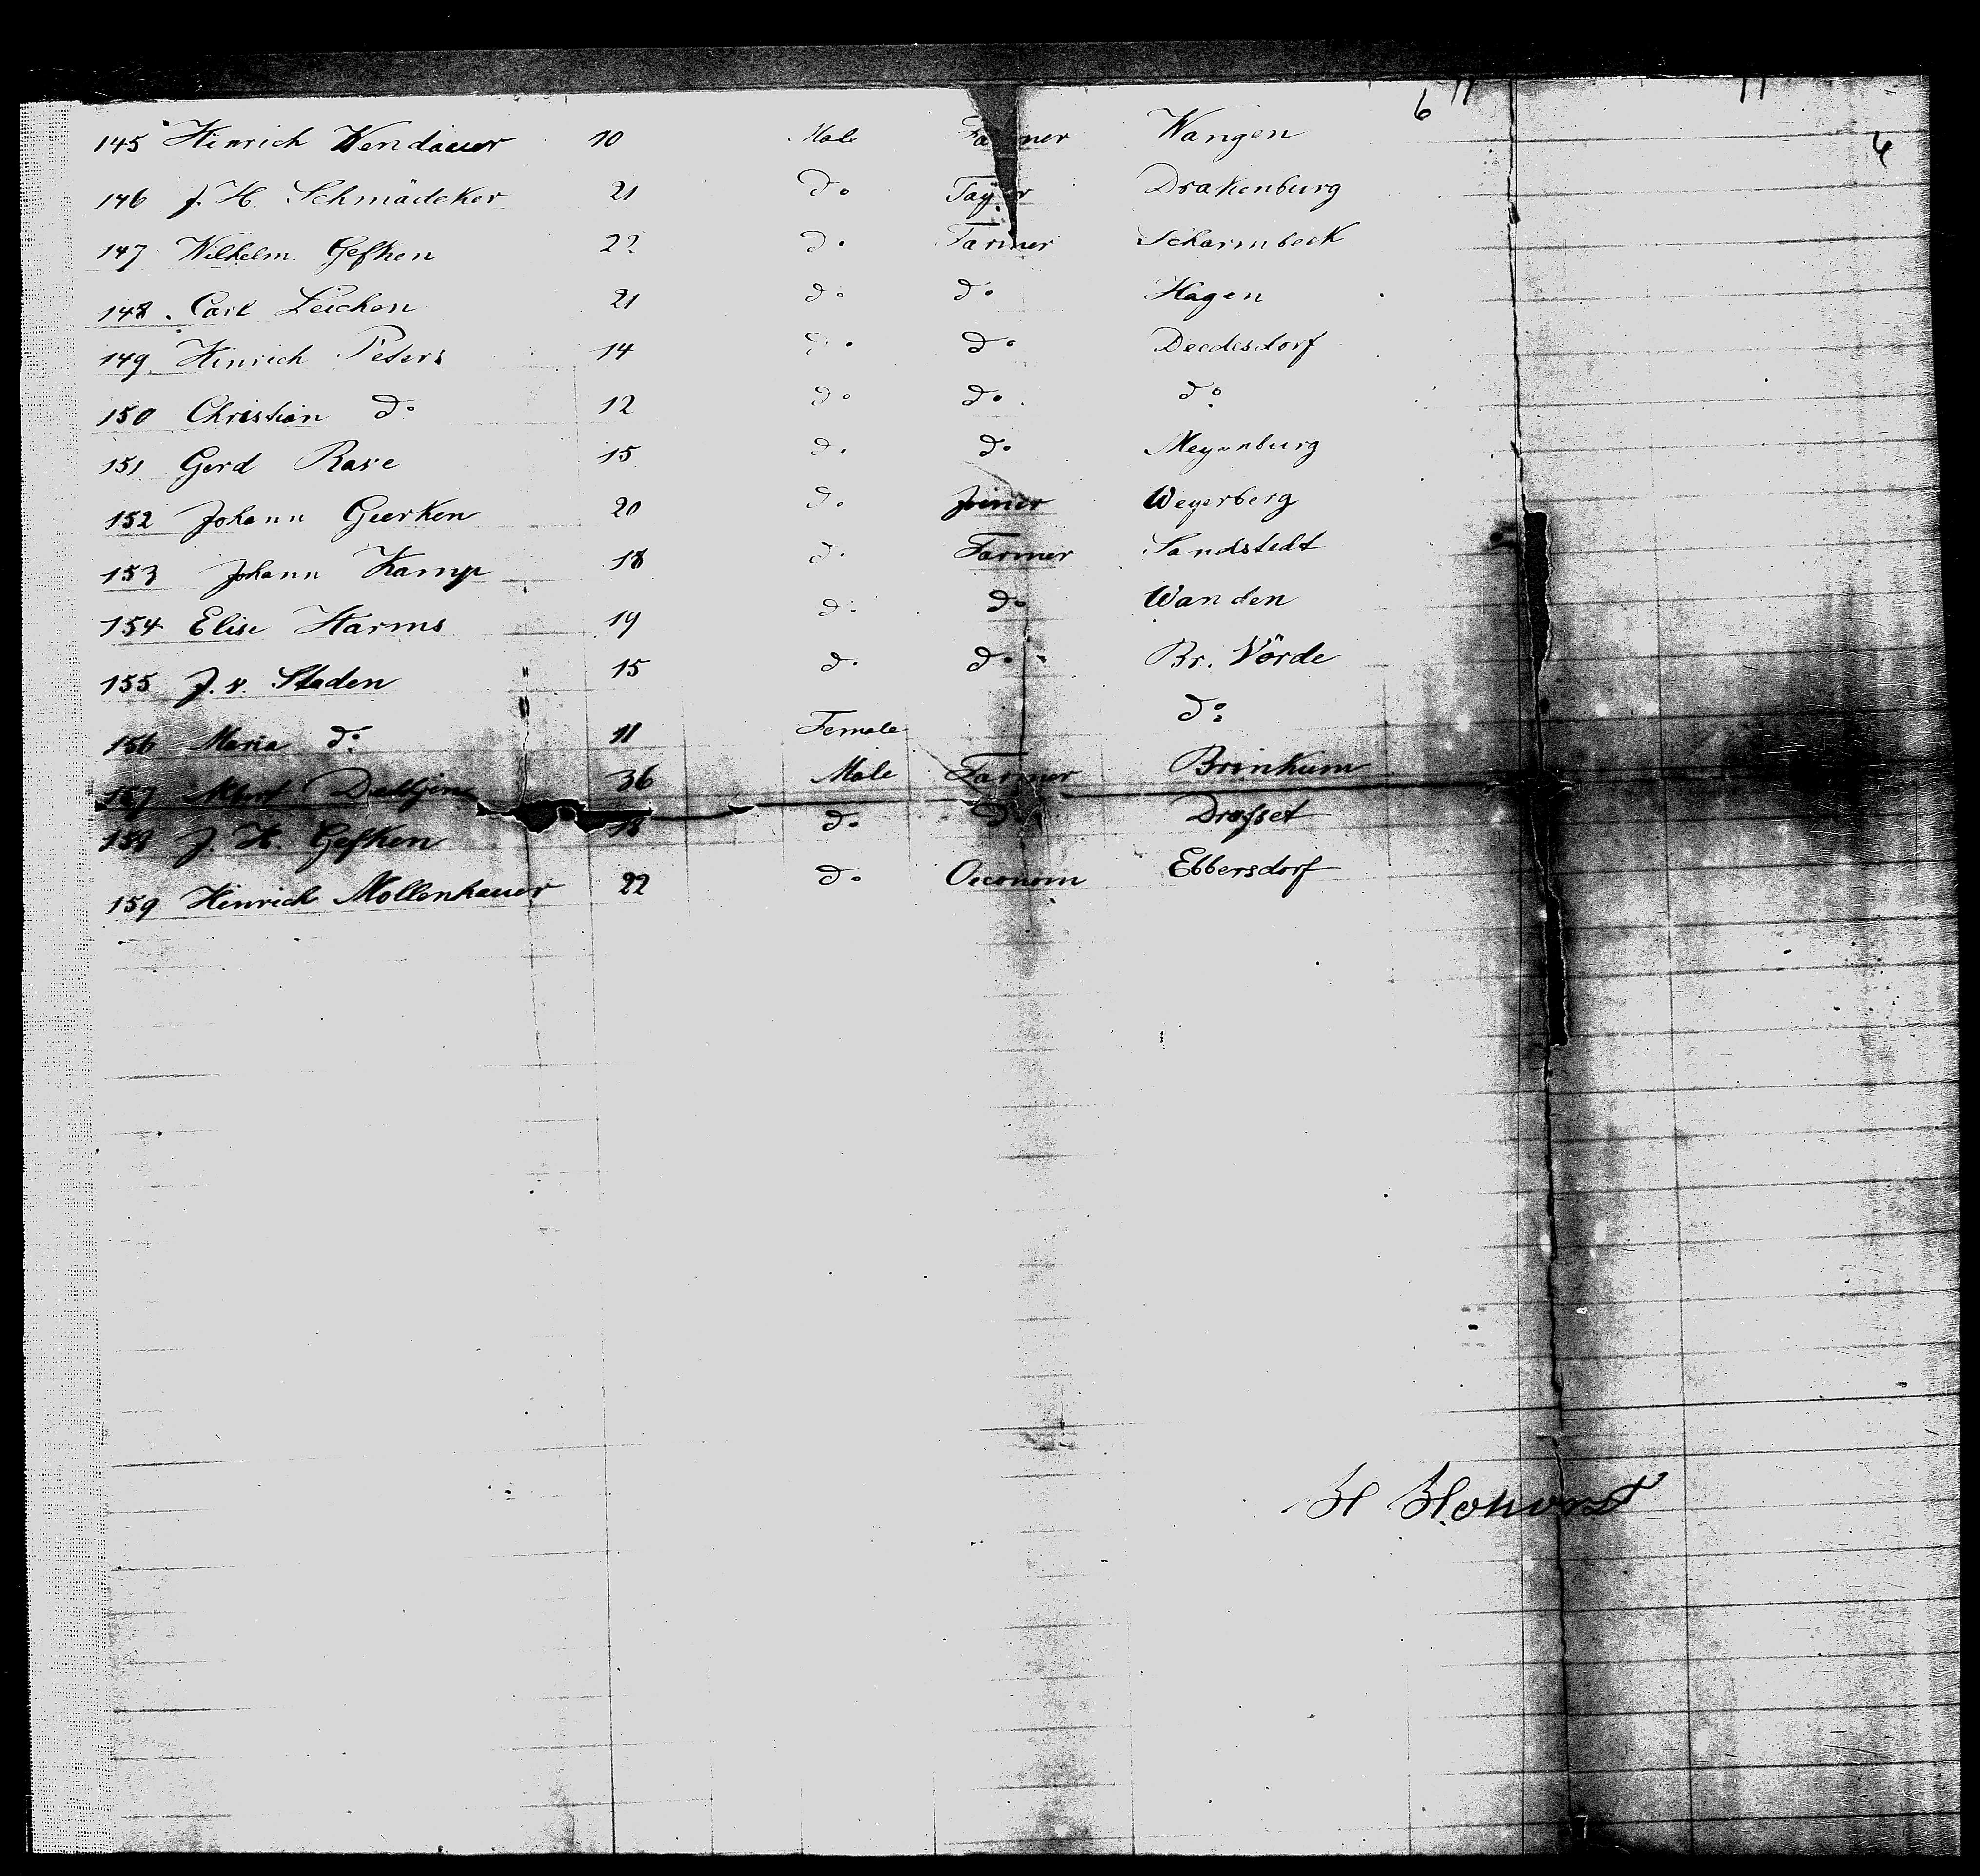 6 11 11
6
145 Hinrich Wendäuer 10 Male Farmer Wangen
146 J. H. Schmädeker 21 do Drakenburg
147 Wilhelm Gefken 22 do Farmer Scharmbeck
148 Carl Leichen 21 do do Hagen
149 Hinrich Peters 14 do do Deedesdorf
150 Christian do 12 do do do
151 Gerd Rase 15 do do Meyenburg
152 Johann Geerken 20 do Joiner Weyerberg
153 Johann Kamp 18 do Farmer Sandstedt
154 Elise Harms 19 do do Wanden
155 J. v. Staden 15 do do Br. Vörde
156 Maria do 11 Female do
157 36 Male Farmer Brinkum
158 J. H. Gefken 18 do do Drafset
159 Hinrich Mollenhauer 22 do Oeconom Ebbersdorf